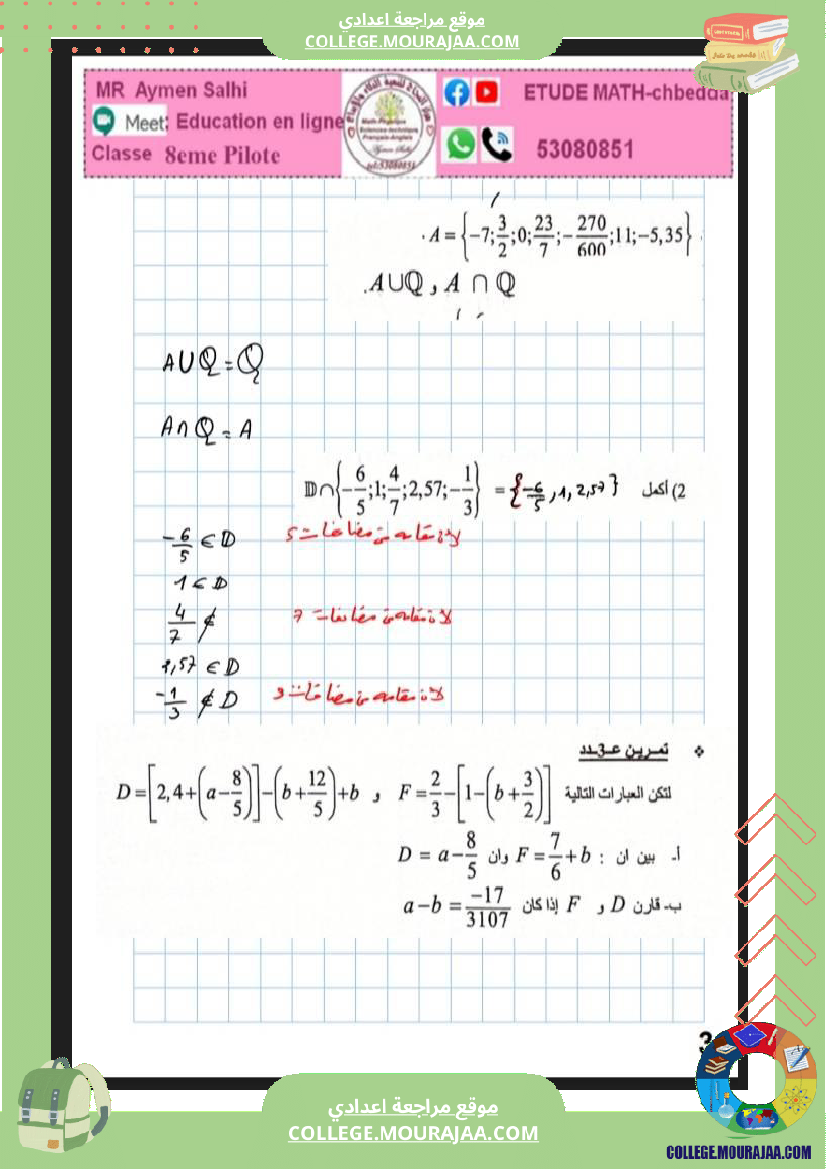 موقع مراجعة اعدادي
COLLEGE.MOURAJAA.COM
MR Aymen Salhi
Meet: Education en ligne
Classe 8eme Pilote
ETUDE MATH-chbedda
53080851
A = {-7; 3/2; 0; 23/7; -270/600; 11; -5,35}
.A∪ℚ , A ∩ ℚ
A∪ℚ = ℚ
A∩ℚ = A
2) أكمل 𝔻∩{-6/5; 1; 4/7; 2,57; -1/3} = {-6/5, 1, 2,57}
-6/5 ∈ 𝔻 لان مقامه من مضاعفات 5
1 ∈ 𝔻
4/7 ∉ لان مقامه من مضاعفات 7
2,57 ∈ 𝔻
-1/3 ∉ 𝔻 لان مقامه من مضاعفات 3
❖ تمرين عـ3ـدد
لتكن العبارات التالية F = 2/3 - [1 - (b + 3/2)] و D = [2,4 + (a - 8/5)] - (b + 12/5) + b
أ- بين ان : F = 7/6 + b وان D = a - 8/5
ب- قارن D و F إذا كان a - b = -17/3107
3
موقع مراجعة اعدادي
COLLEGE.MOURAJAA.COM
COLLEGE.MOURAJAA.COM